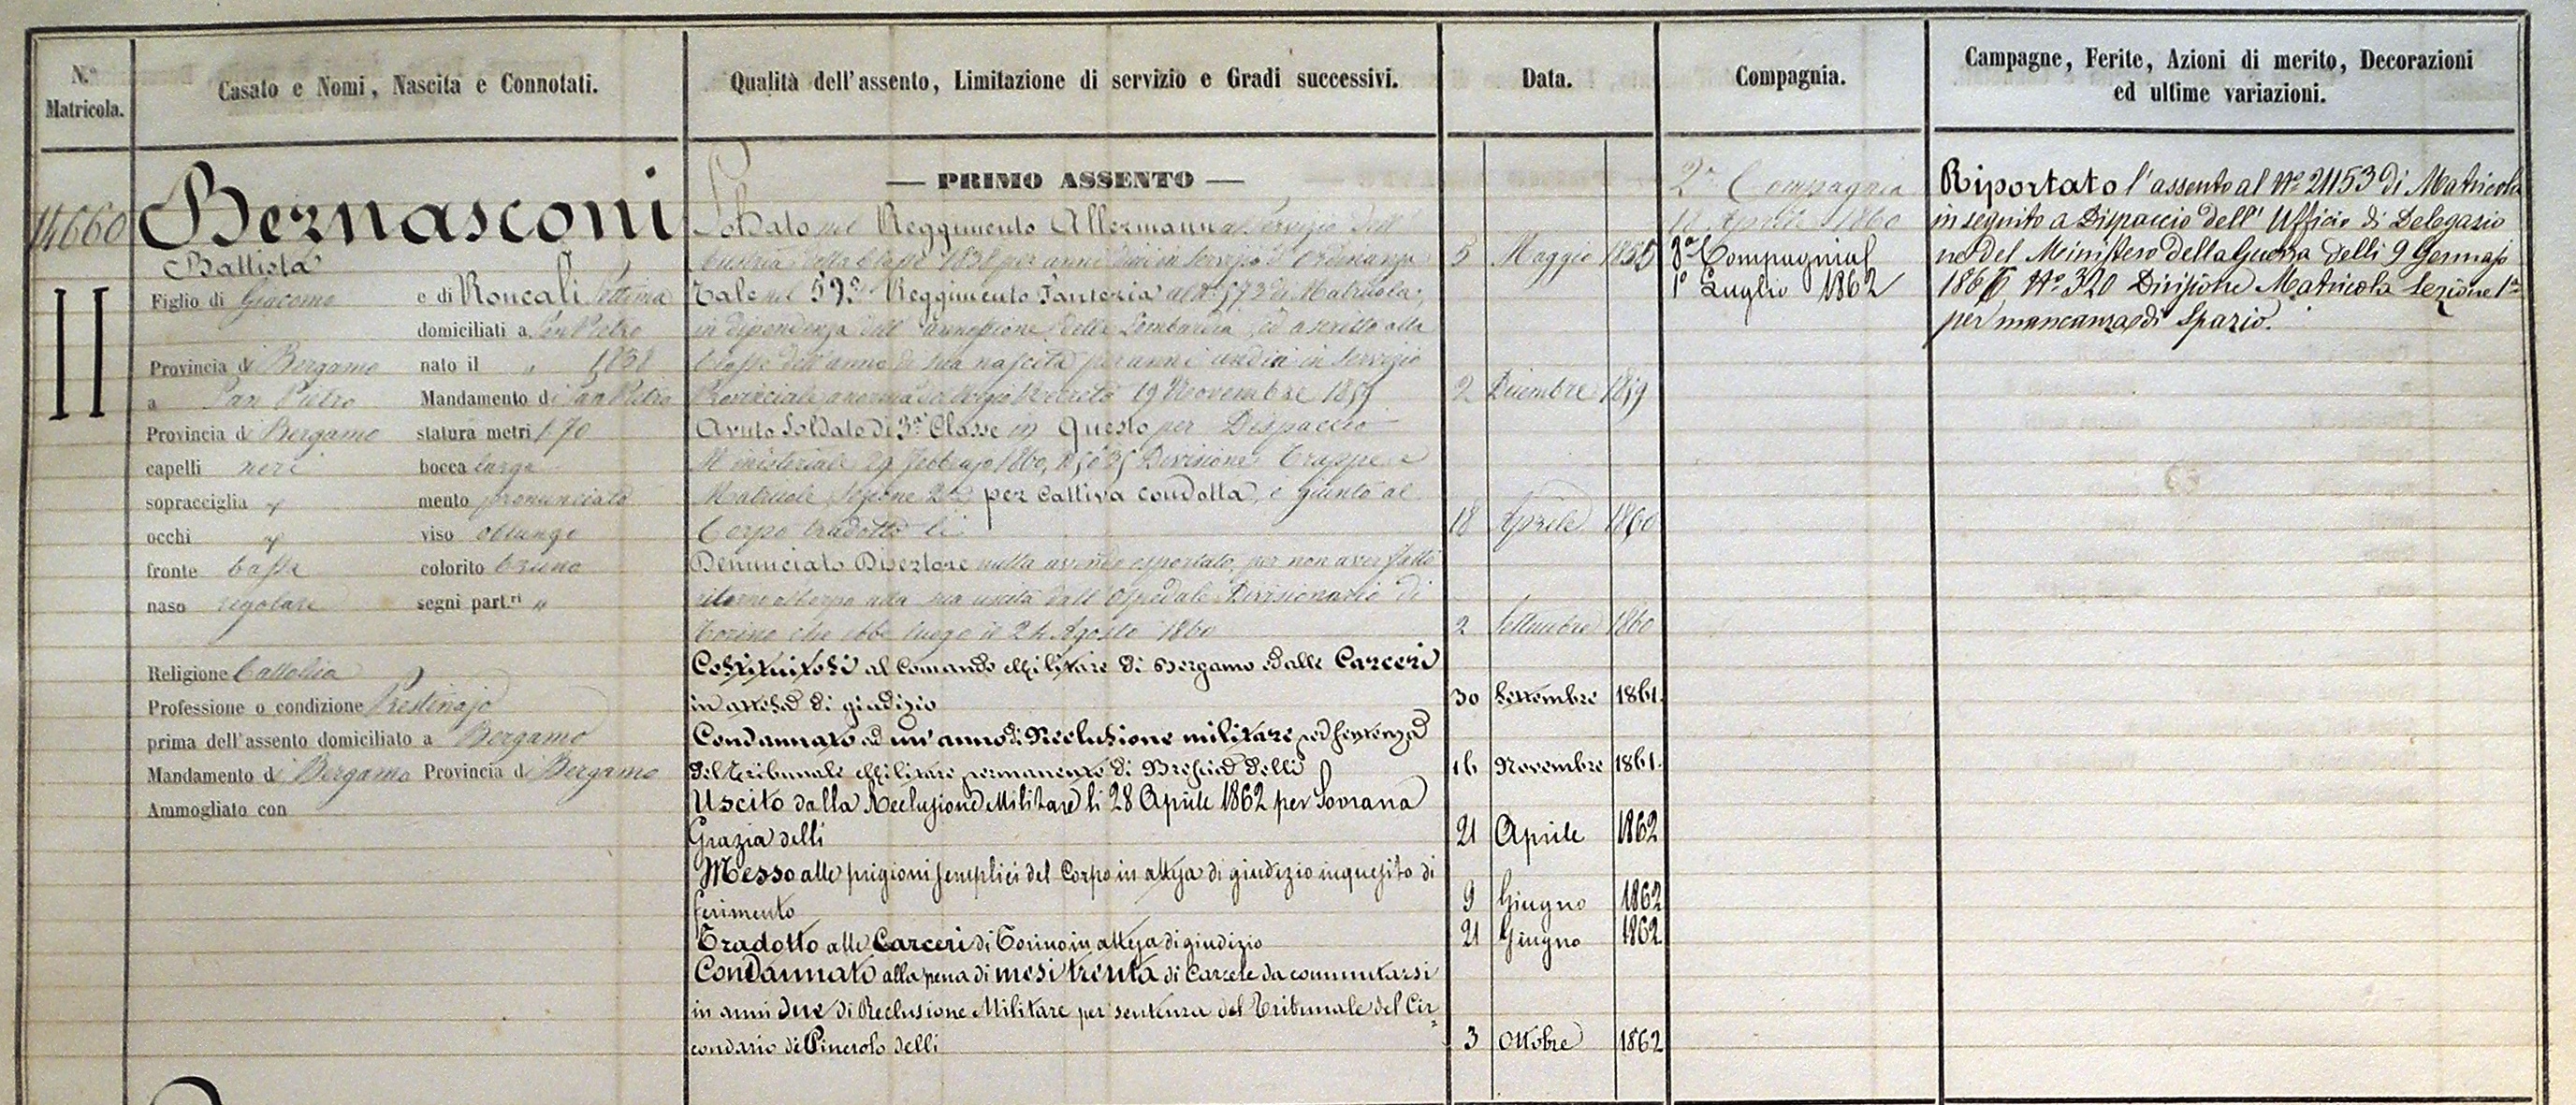 N.º Matricola.
Casato e Nomi, Nascita e Connotati.
Qualità dell'assento, Limitazione di servizio e Gradi successivi.
Data.
Compagnia.
Campagne, Ferite, Azioni di merito, Decorazioni
ed ultime variazioni.
14660
Bernasconi
Battista
Figlio di Giacomo e di Roncali
domiciliati a San Pietro
Provincia di Bergamo nato il " 1838
a San Pietro Mandamento di San Pietro
Provincia di Bergamo statura metri 1.70
capelli neri bocca larga
sopracciglia mento pronunciato
occhi viso oblungo
fronte bassa colorito bruno
naso regolare segni part.ri "
Religione Cattolica
Professione o condizione Prestinajo
prima dell'assento domiciliato a Bergamo
Mandamento di Bergamo Provincia di Bergamo
Ammogliato con
— PRIMO ASSENTO —
Soldato nel Reggimento Allermann al Servizio dell'
Austria della Classe 1838 per anni dieci in servizio d'Ordinanza 5 Maggio
Tale nel 59º Reggimento Fanteria al Nº 573 di Matricola,
in dipendenza dell'annessione della Lombardia, ed ascritto alla
Classe dell'anno di sua nascita per anni undici in Servizio
Provinciale a norma del Regio Decreto 19 Novembre 1859 2 Dicembre 1859
Avuto Soldato di 3ª Classe in Questo per Dispaccio
Ministeriale 29 Febbrajo 1860, Divisione Truppe e
Matricole Sezione 2ª per cattiva condotta, e giunto al
Corpo tradotto li 18 Aprile 1860
Denunciato Disertore nulla avendo esportato, per non aver fatto
ritorno al Corpo alla sua uscita dall'Ospedale Divisionario di
Torino che ebbe luogo il 24 Agosto 1860 2 Settembre 1860
Costituitosi al Comando Militare di Bergamo e dalle Carceri
in attesa di giudizio 30 Settembre 1861.
Condannato ad un'anno di Reclusione militare per sentenza
del Tribunale Militare permanente di Brescia delli 16 Novembre 1861.
Uscito dalla Reclusione Militare li 28 Aprile 1862 per Sovrana
Grazia delli 21 Aprile 1862
Messo alle prigioni semplici del Corpo in attesa di giudizio inquisito di
ferimento 9 Giugno 1862
Tradotto alle Carceri di Torino in attesa di giudizio 21 Giugno 1862
Condannato alla pena di mesi trenta di Carcere da commutarsi
in anni due di Reclusione Militare per sentenza del Tribunale del Cir=
condario di Pinerolo delli 3 Ottobre 1862
2ª Compagnia
Aprile 1860
3ª Compagnia
1º Luglio 1862
Riportato l'assento al Nº 21153 di Matricola
in seguito a Dispaccio dell'Ufficio di Delegazio
ne del Ministero della Guerra delli 9 Gennajo
Nº 320 Divisione Matricola Sezione 1ª
per mancanza di Spazio.